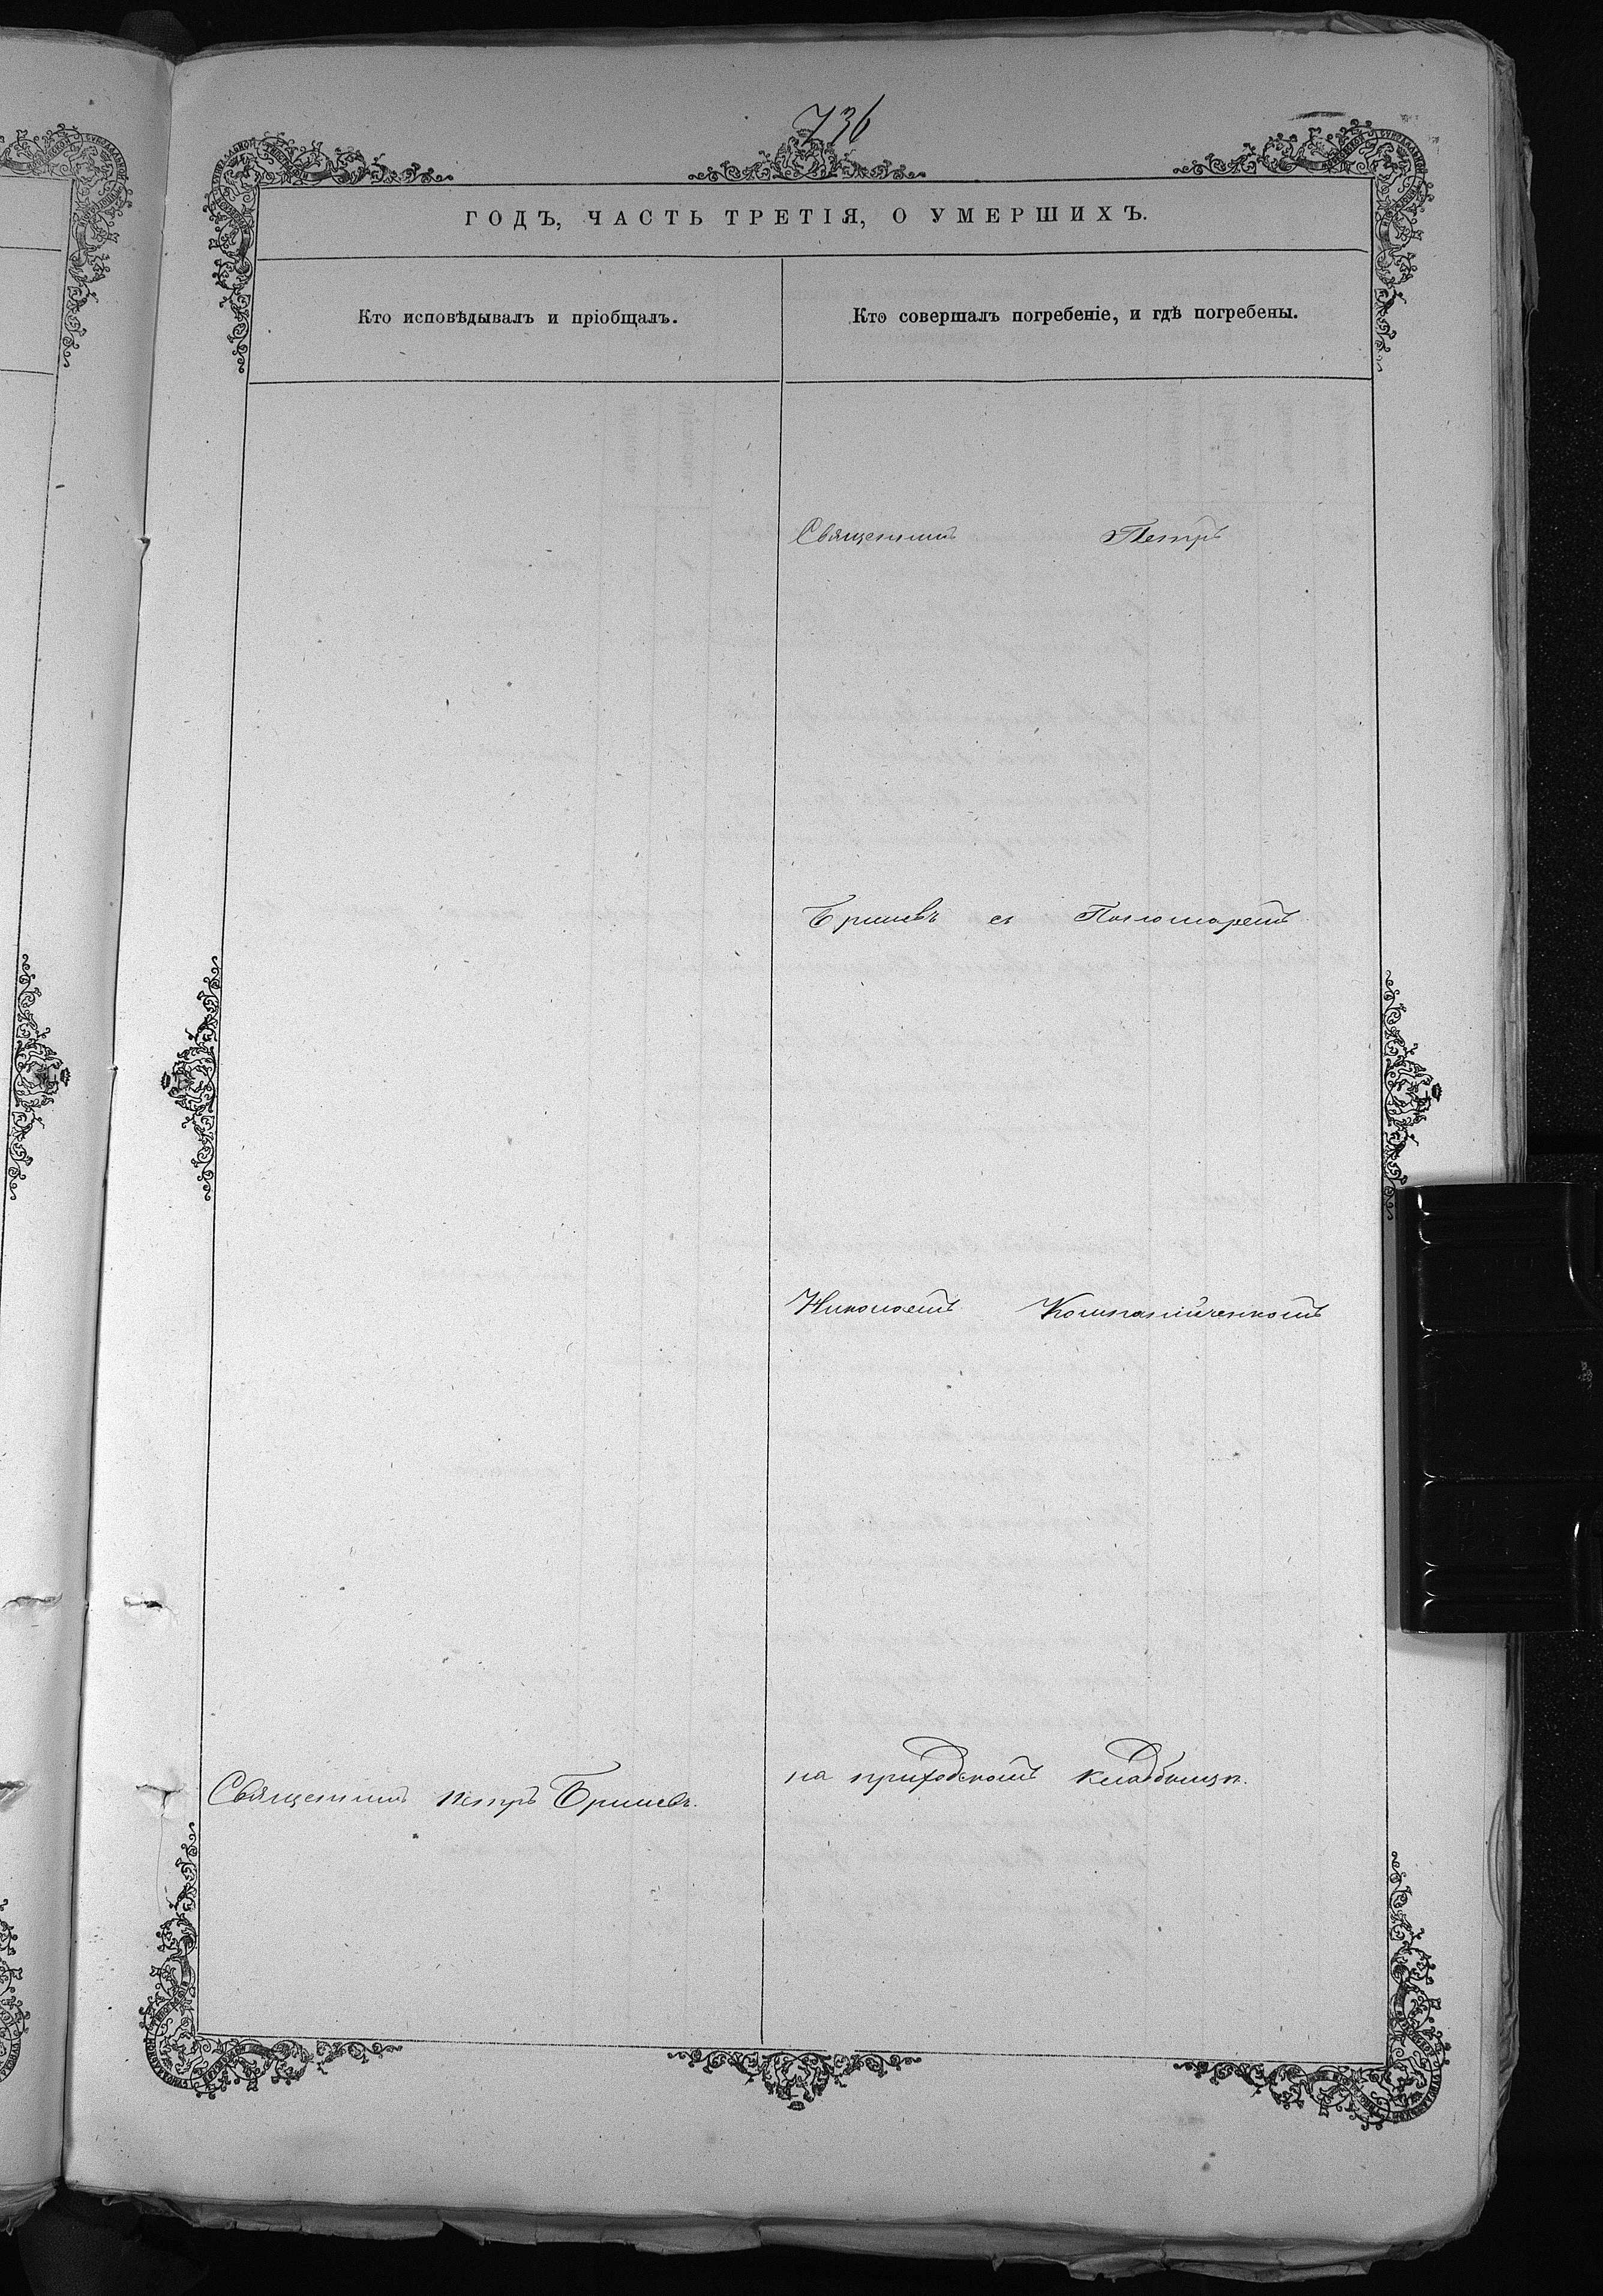 736
ГОДЪ, ЧАСТЬ ТРЕТІЯ, О УМЕРШИХЪ.
Кто исповѣдывалъ и пріобщалъ.
Кто совершалъ погребеніе, и гдѣ погребены.
Священникъ Петръ
съ Пономаремъ
Николаемъ Компанійченкомъ
на приходскомъ кладбищѣ.
Священникъ Петръ